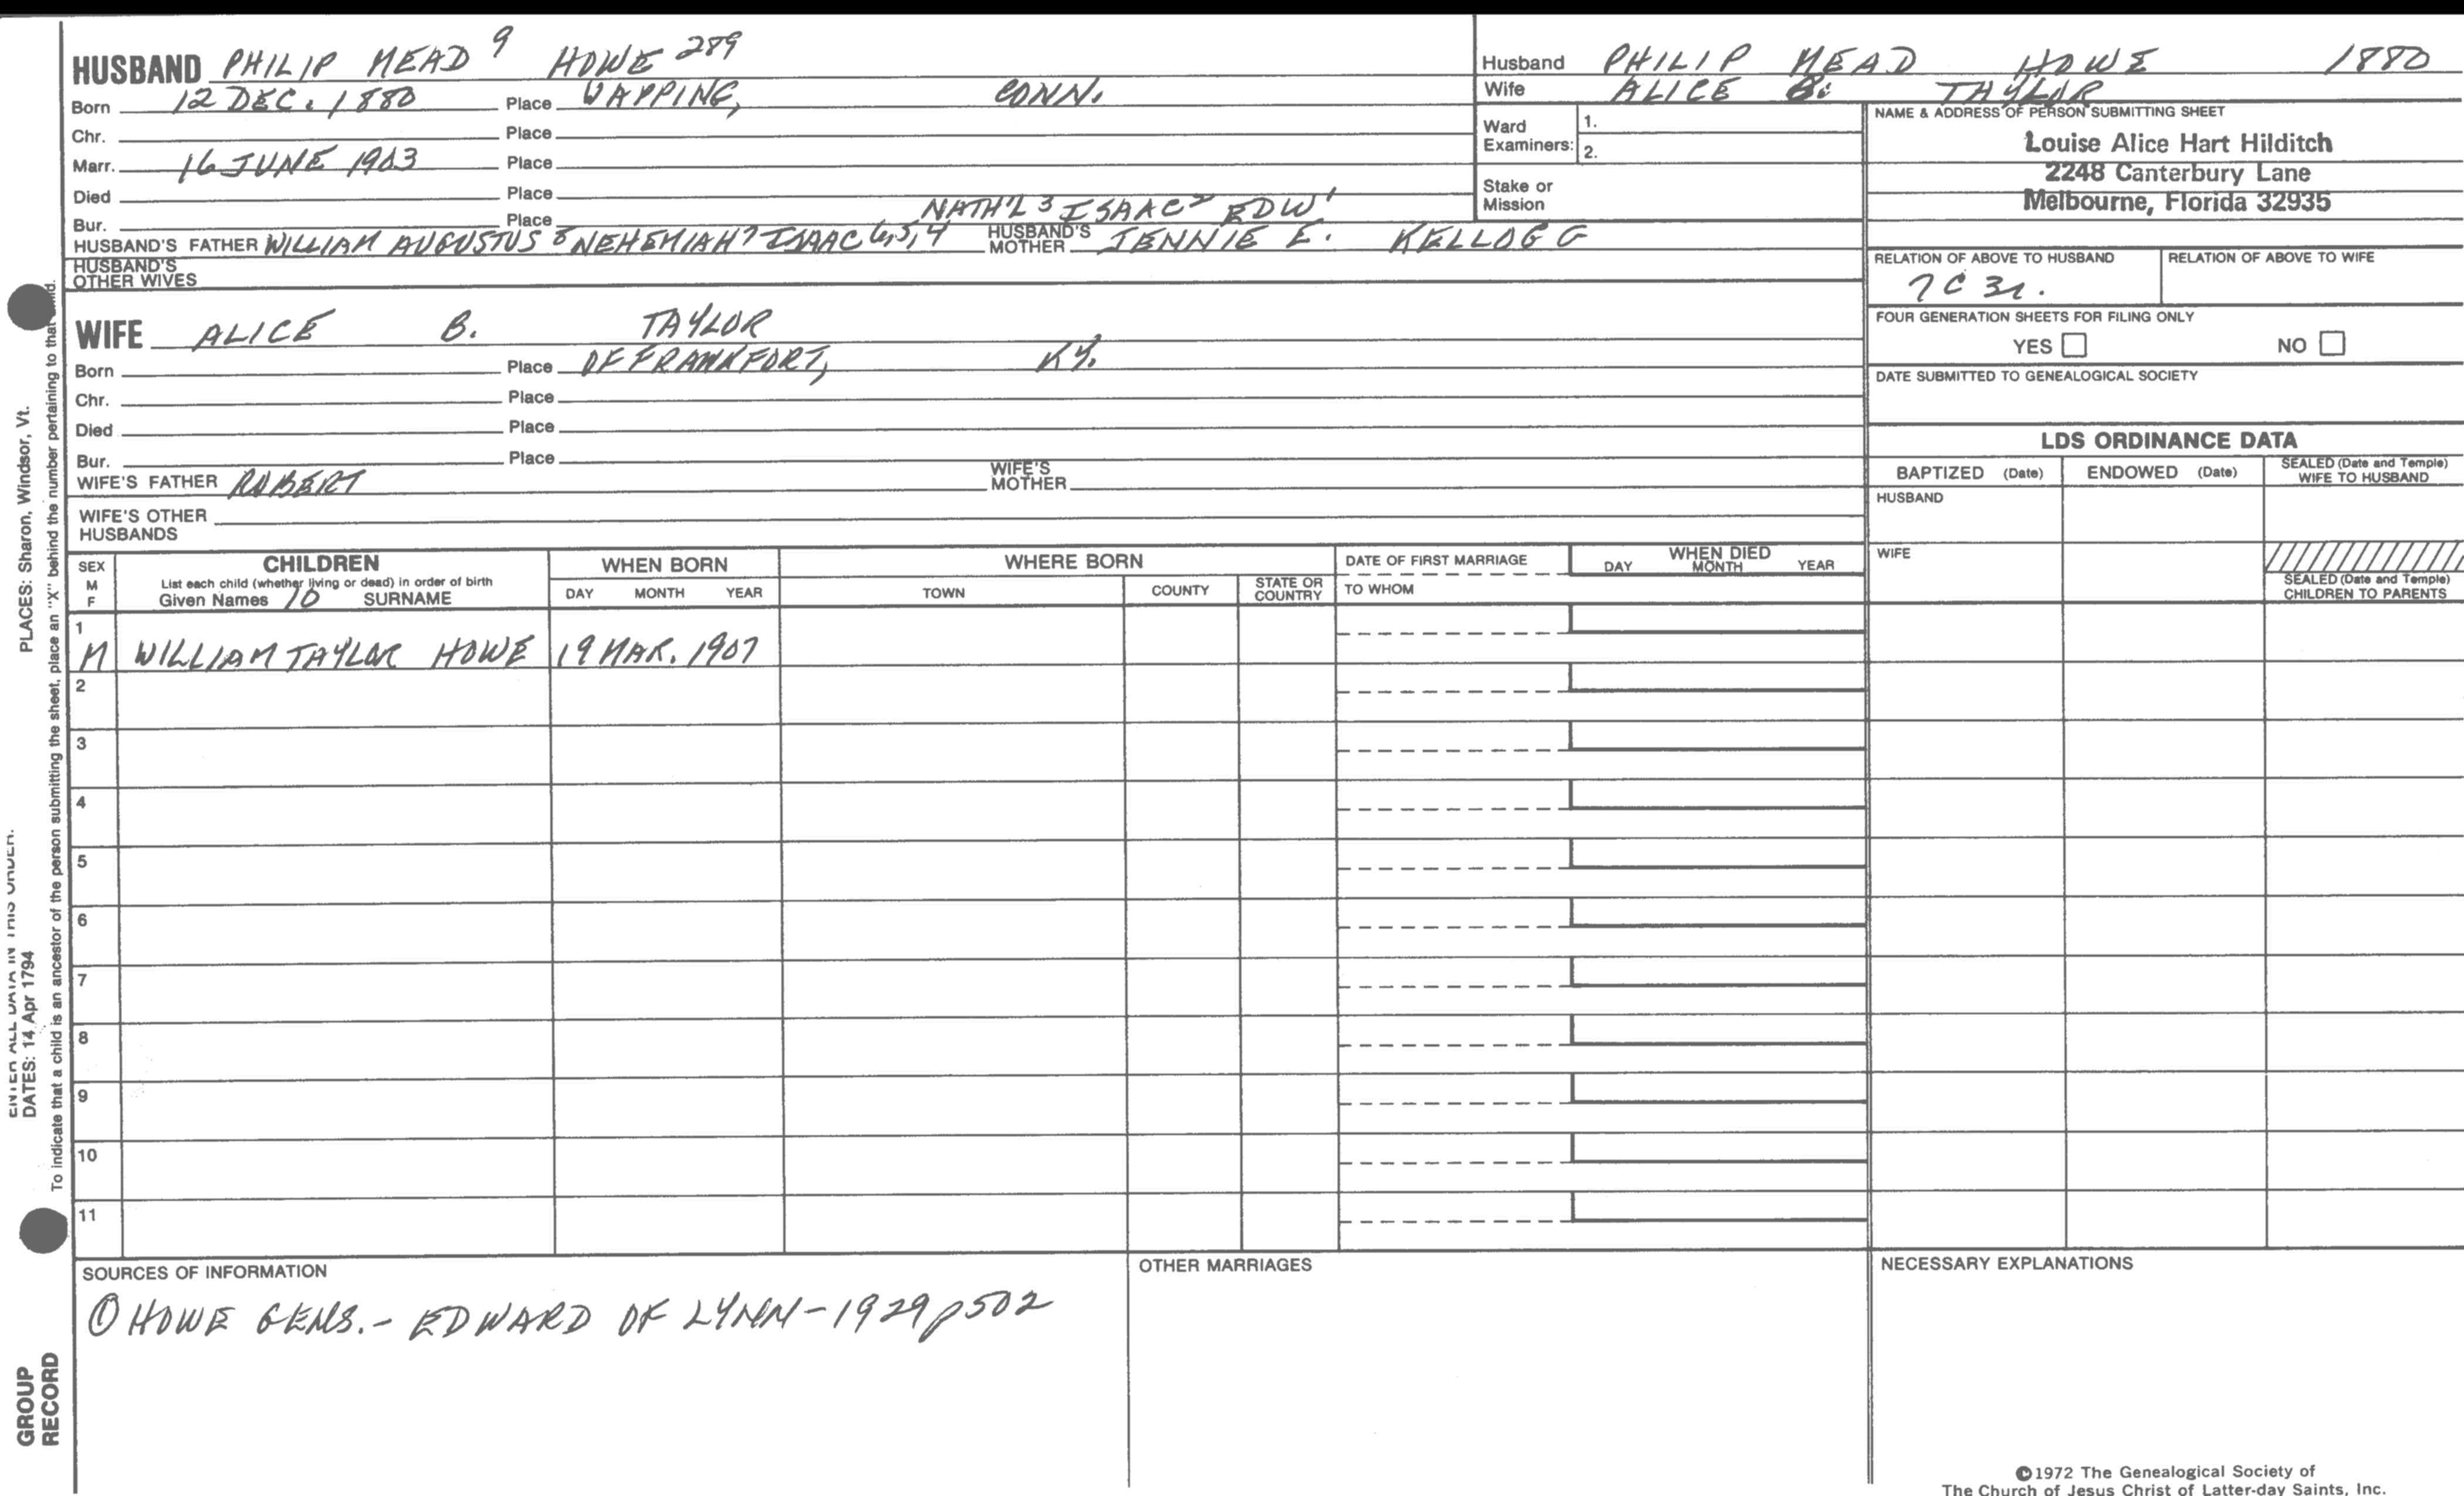 HUSBAND PHILIP MEAD 9 HOWE 289
Born 12 DEC. 1880 Place WAPPING, CONN.
Chr. Place
Marr. 16 JUNE 1903 Place
Died Place
Bur. Place NATH'L 3 ISAAC 2 EDW 1
HUSBAND'S FATHER WILLIAM AUGUSTUS 8 NEHEMIAH 7 ISAAC 6,5,4 HUSBAND'S MOTHER JENNIE E. KELLOGG
HUSBAND'S OTHER WIVES
WIFE ALICE B. TAYLOR
Born Place OF FRANKFORT, KY.
Chr. Place
Died Place
Bur. Place
WIFE'S FATHER ROBERT WIFE'S MOTHER
WIFE'S OTHER HUSBANDS
Husband PHILIP MEAD HOWE 1880
Wife ALICE B. TAYLOR
Ward Examiners: 1.
2.
Stake or Mission
NAME & ADDRESS OF PERSON SUBMITTING SHEET
Louise Alice Hart Hilditch
2248 Canterbury Lane
Melbourne, Florida 32935
RELATION OF ABOVE TO HUSBAND RELATION OF ABOVE TO WIFE
7C 3r.
FOUR GENERATION SHEETS FOR FILING ONLY
YES NO
DATE SUBMITTED TO GENEALOGICAL SOCIETY
LDS ORDINANCE DATA
BAPTIZED (Date) ENDOWED (Date) SEALED (Date and Temple) WIFE TO HUSBAND
HUSBAND
WIFE
SEALED (Date and Temple) CHILDREN TO PARENTS
SEX M F
CHILDREN
List each child (whether living or dead) in order of birth
Given Names 10 SURNAME
WHEN BORN
DAY MONTH YEAR
WHERE BORN
TOWN COUNTY STATE OR COUNTRY
DATE OF FIRST MARRIAGE
TO WHOM
WHEN DIED
DAY MONTH YEAR
1
M WILLIAM TAYLOR HOWE 19 MAR. 1907
2
3
4
5
6
7
8
9
10
11
SOURCES OF INFORMATION
① HOWE GENS. - EDWARD OF LYNN - 1929 p502
OTHER MARRIAGES
NECESSARY EXPLANATIONS
©1972 The Genealogical Society of
The Church of Jesus Christ of Latter-day Saints, Inc.
PLACES: Sharon, Windsor, Vt.
ENTER ALL DATA IN THIS ORDER:
DATES: 14 Apr 1794
To indicate that a child is an ancestor of the person submitting the sheet, place an "X" behind the number pertaining to that child.
GROUP
RECORD